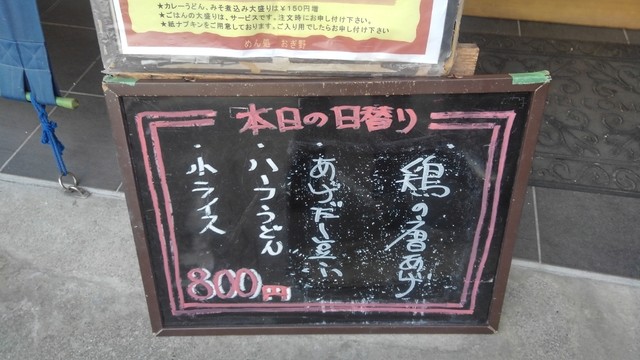 ★カレーうどん、みそ煮込み大盛りは￥150円増
★ごはんの大盛りは、サービスです。注文時にお申し付け下さい。
★紙ナプキンをご用意しております。ご入り用でしたらお申し付け下さい
めん処 おぎ野
本日の日替り
・鶏の唐あげ
・あげだし豆ふ
・ハーフうどん
・小ライス
800円